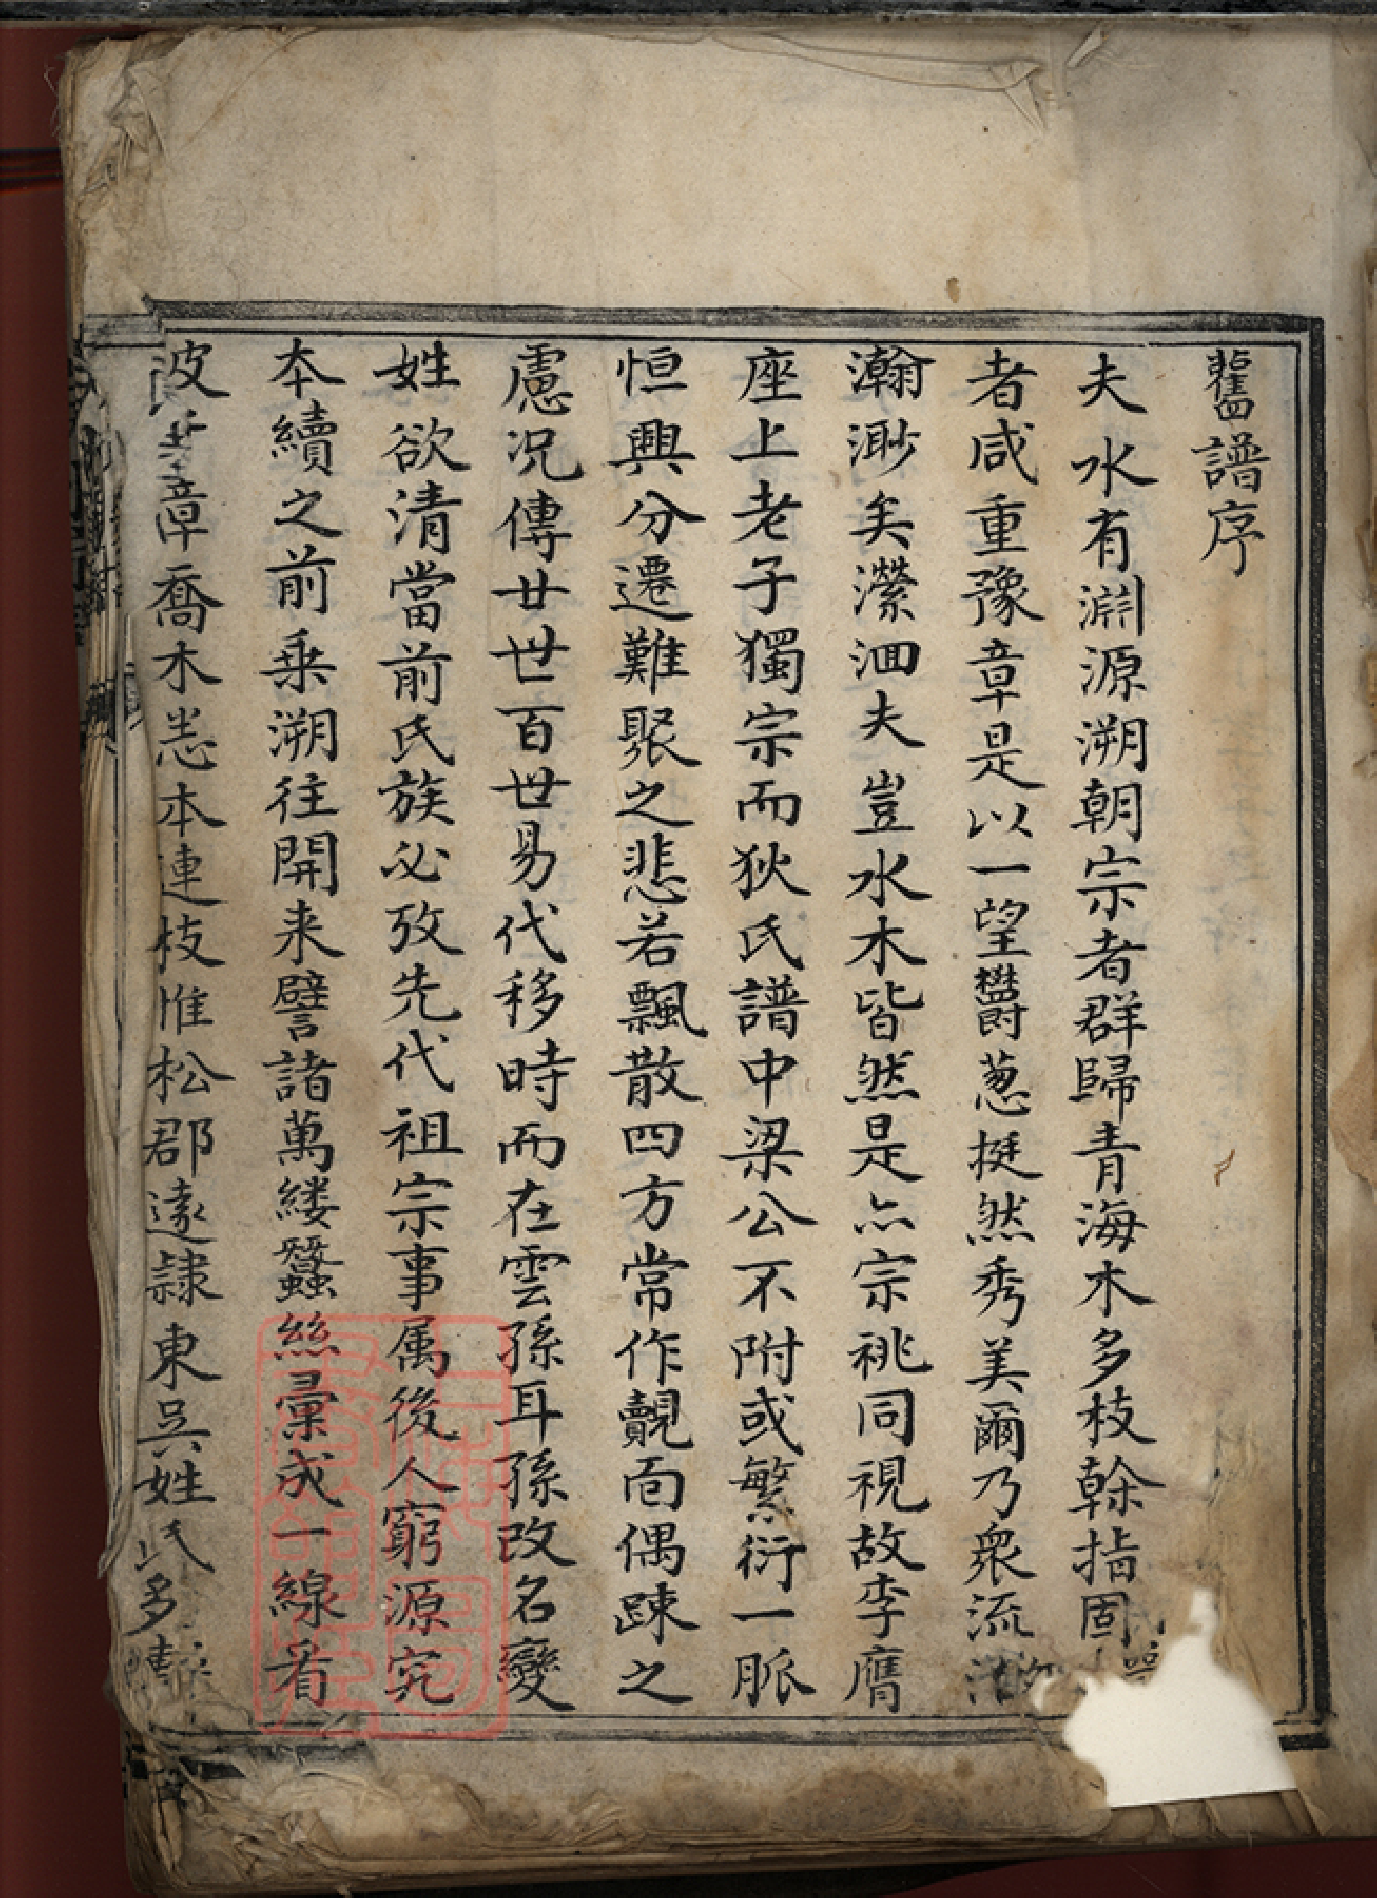 舊譜序
夫水有淵源溯朝宗者群歸青海木多枝榦指固
者咸重豫章是以一望欝葱挺然秀美爾乃衆流
瀚渺矣瀠洄夫豈水木皆然是亦宗祧同視故李膺
座上老子獨宗而狄氏譜中梁公不附或繁衍一脈
恒興分遷難聚之悲若飄散四方常作覿面偶踈之
慮况傳廿世百世易代移時而在雲孫耳孫改名變
姓欲清當前氏族必攷先代祖宗事属後人窮源究
本續之前乗溯往開来譬諸萬縷蠶絲彚成一線看
波 章喬木恙本連枝惟松郡遠隷東吳姓氏 多